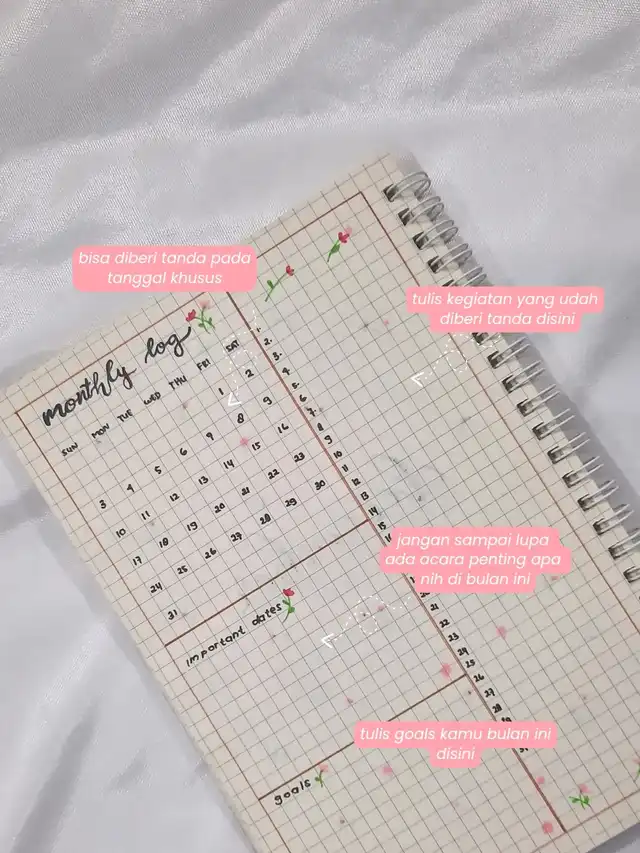 bisa diberi tanda pada
tanggal khusus
tulis kegiatan yang udah
diberi tanda disini
monthly log
SUN MON TUE WED THU FRI SAT
1 2
3 4 5 6 7 8 9
10 11 12 13 14 15 16
17 18 19 20 21 22 23
24 25 26 27 28 29 30
31
1.
2.
3.
4
5
6
7
8
9
10
11
12
13
14
15
jangan sampai lupa
ada acara penting apa
nih di bulan ini
20
21
22
23
24
25
26
27
28
important dates
tulis goals kamu bulan ini
disini
goals